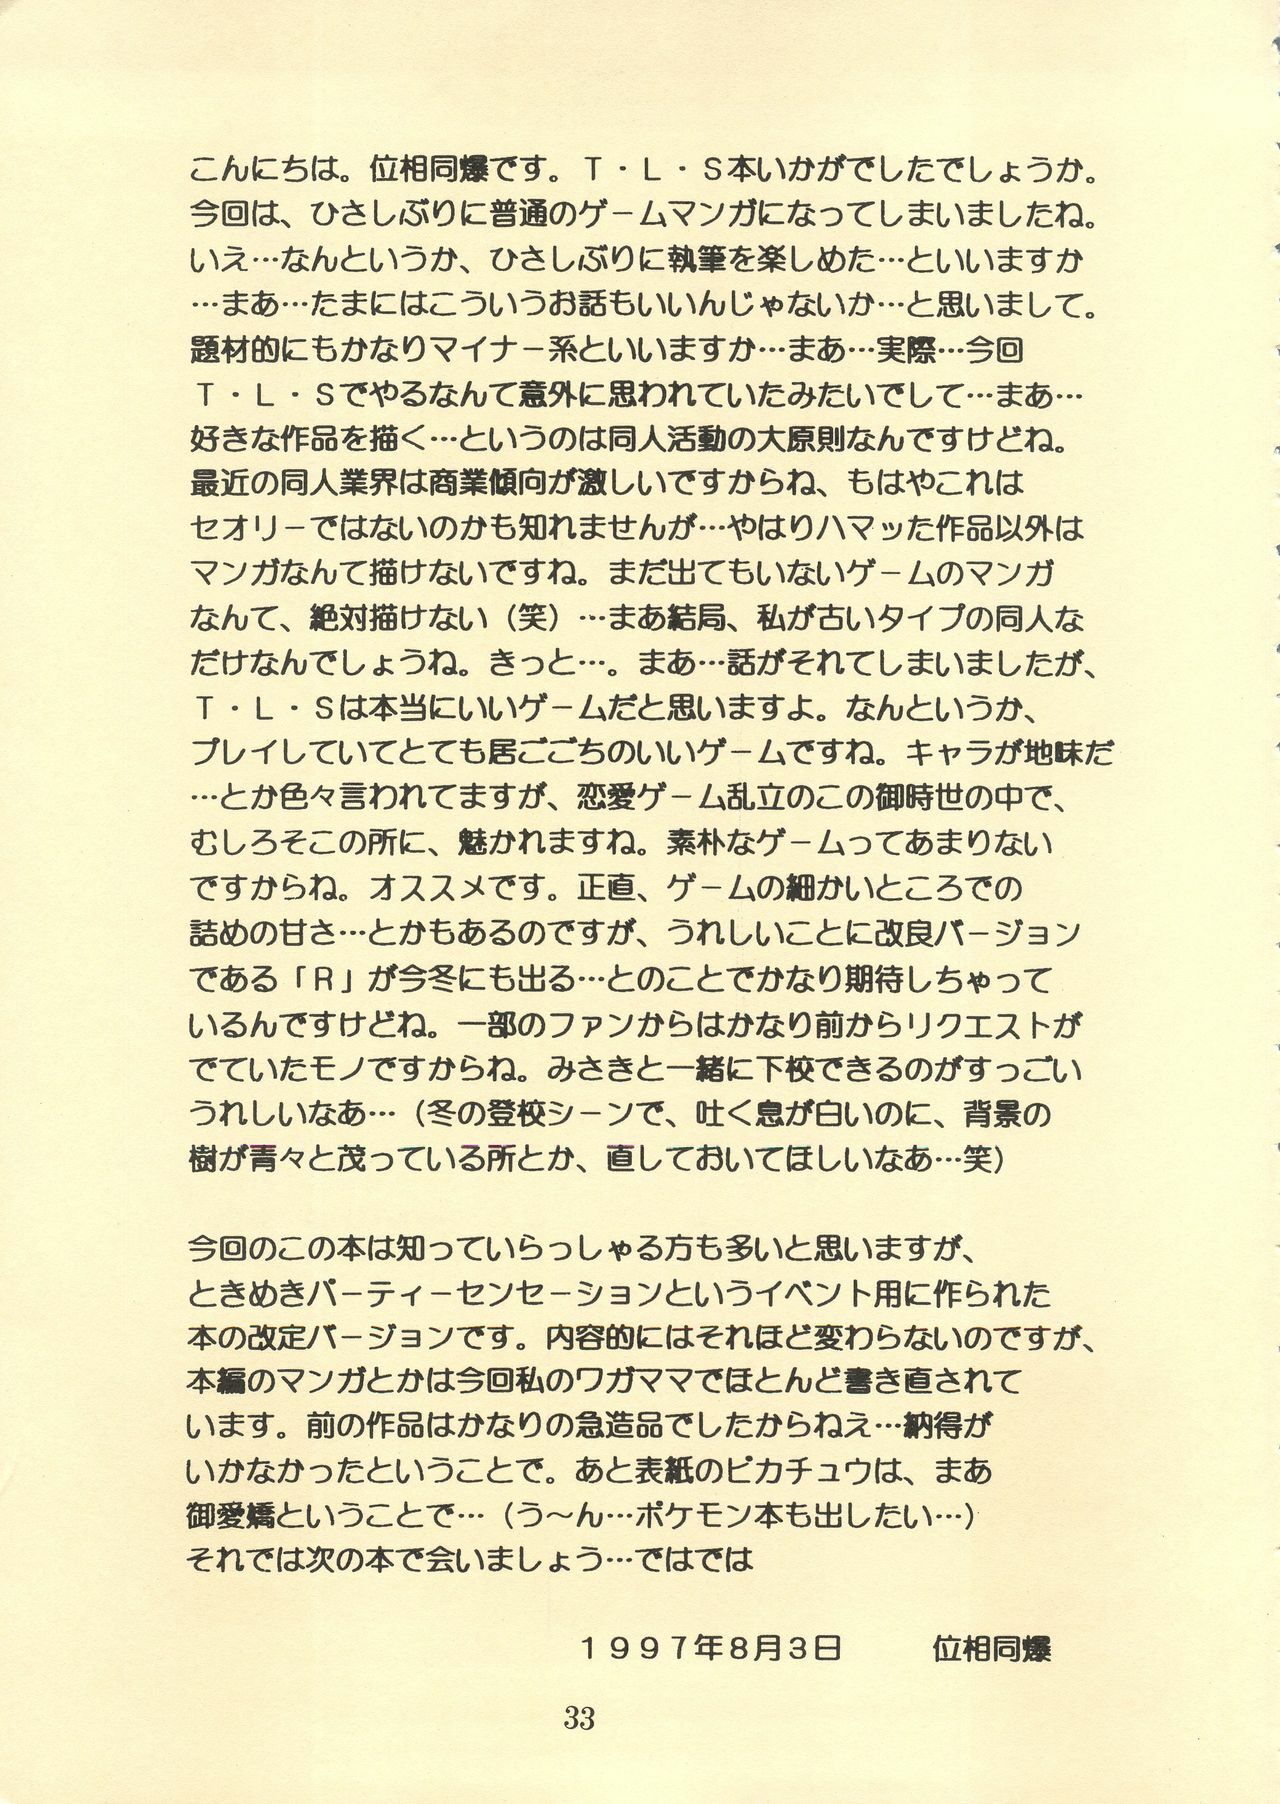 こんにちは。位相同爆です。Ｔ・Ｌ・Ｓ本いかがでしたでしょうか。
今回は、ひさしぶりに普通のゲームマンガになってしまいましたね。
いえ…なんというか、ひさしぶりに執筆を楽しめた…といいますか
…まあ…たまにはこういうお話もいいんじゃないか…と思いまして。
題材的にもかなりマイナー系といいますか…まあ…実際…今回
Ｔ・Ｌ・Ｓでやるなんて意外に思われていたみたいでして…まあ…
好きな作品を描く…というのは同人活動の大原則なんですけどね。
最近の同人業界は商業傾向が激しいですからね、もはやこれは
セオリーではないのかも知れませんが…やはりハマッた作品以外は
マンガなんて描けないですね。まだ出てもいないゲームのマンガ
なんて、絶対描けない（笑）…まあ結局、私が古いタイプの同人な
だけなんでしょうね。きっと…。まあ…話がそれてしまいましたが、
Ｔ・Ｌ・Ｓは本当にいいゲームだと思いますよ。なんというか、
プレイしていてとても居ごごちのいいゲームですね。キャラが地味だ
…とか色々言われてますが、恋愛ゲーム乱立のこの御時世の中で、
むしろそこの所に、魅かれますね。素朴なゲームってあまりない
ですからね。オススメです。正直、ゲームの細かいところでの
詰めの甘さ…とかもあるのですが、うれしいことに改良バージョン
である「Ｒ」が今冬にも出る…とのことでかなり期待しちゃって
いるんですけどね。一部のファンからはかなり前からリクエストが
でていたモノですからね。みさきと一緒に下校できるのがすっごい
うれしいなあ…（冬の登校シーンで、吐く息が白いのに、背景の
樹が青々と茂っている所とか、直しておいてほしいなあ…笑）
今回のこの本は知っていらっしゃる方も多いと思いますが、
ときめきパーティーセンセーションというイベント用に作られた
本の改定バージョンです。内容的にはそれほど変わらないのですが、
本編のマンガとかは今回私のワガママでほとんど書き直されて
います。前の作品はかなりの急造品でしたからねえ…納得が
いかなかったということで。あと表紙のピカチュウは、まあ
御愛嬌ということで…（う～ん…ポケモン本も出したい…）
それでは次の本で会いましょう…ではでは
１９９７年８月３日　　　位相同爆
33